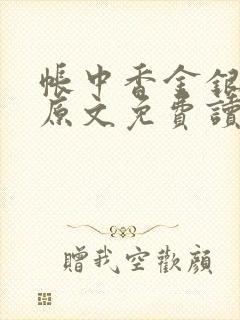 帳中香金銀
原文免費讀
贈我空歡顔